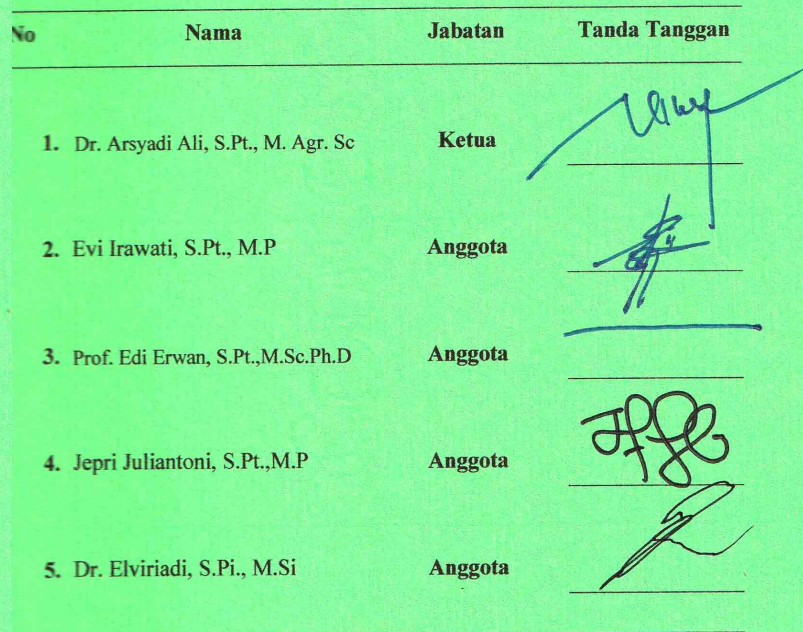 No Nama Jabatan Tanda Tanggan
1. Dr. Arsyadi Ali, S.Pt., M. Agr. Sc Ketua
2. Evi Irawati, S.Pt., M.P Anggota
3. Prof. Edi Erwan, S.Pt.,M.Sc.Ph.D Anggota
4. Jepri Juliantoni, S.Pt.,M.P Anggota
5. Dr. Elviriadi, S.Pi., M.Si Anggota